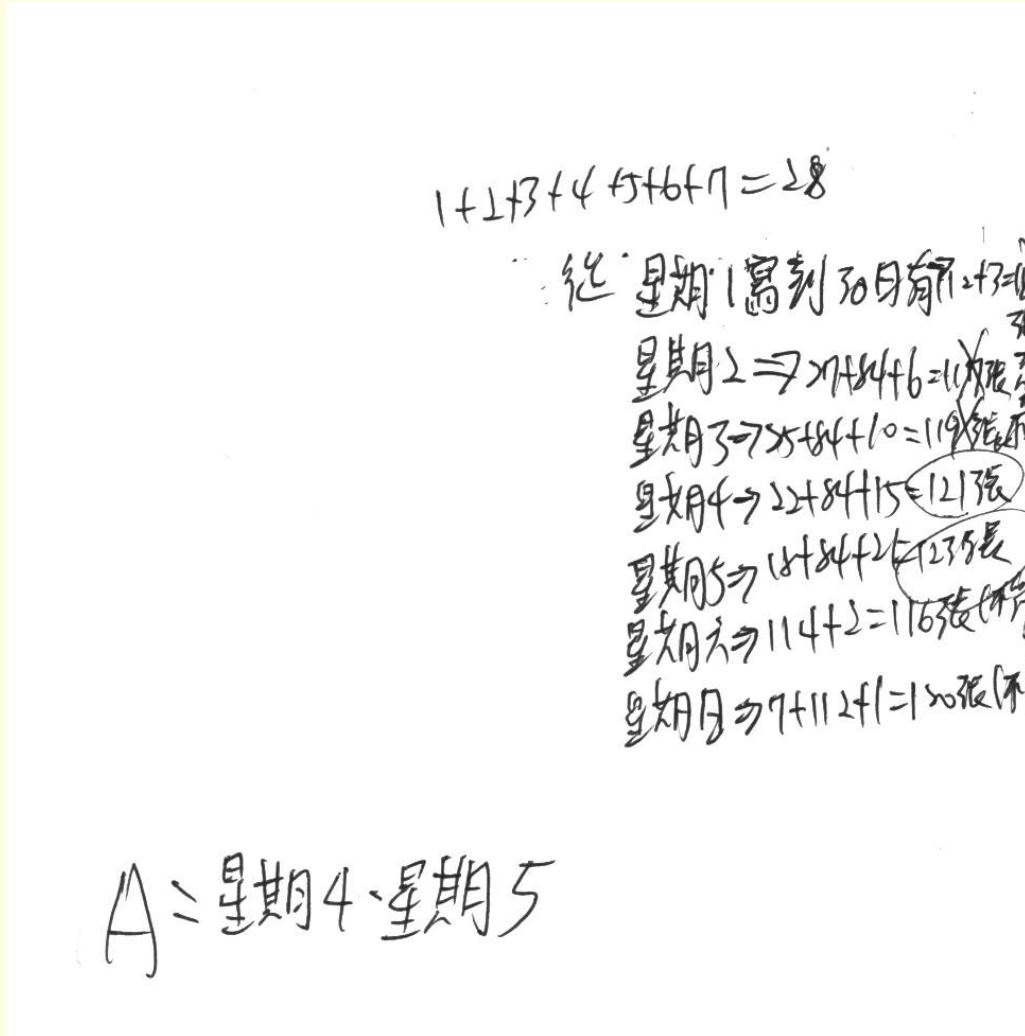 1+2+3+4+5+6+7=28
從星期1寫到30日有112+3=11
星期2⇒27+84+6=117張
星期3⇒25+84+10=119張
星期4⇒22+84+15=121張
星期5⇒18+84+21=123張
星期六⇒114+2=116張(不
星期日⇒7+112+1=120張(不
A=星期4、星期5